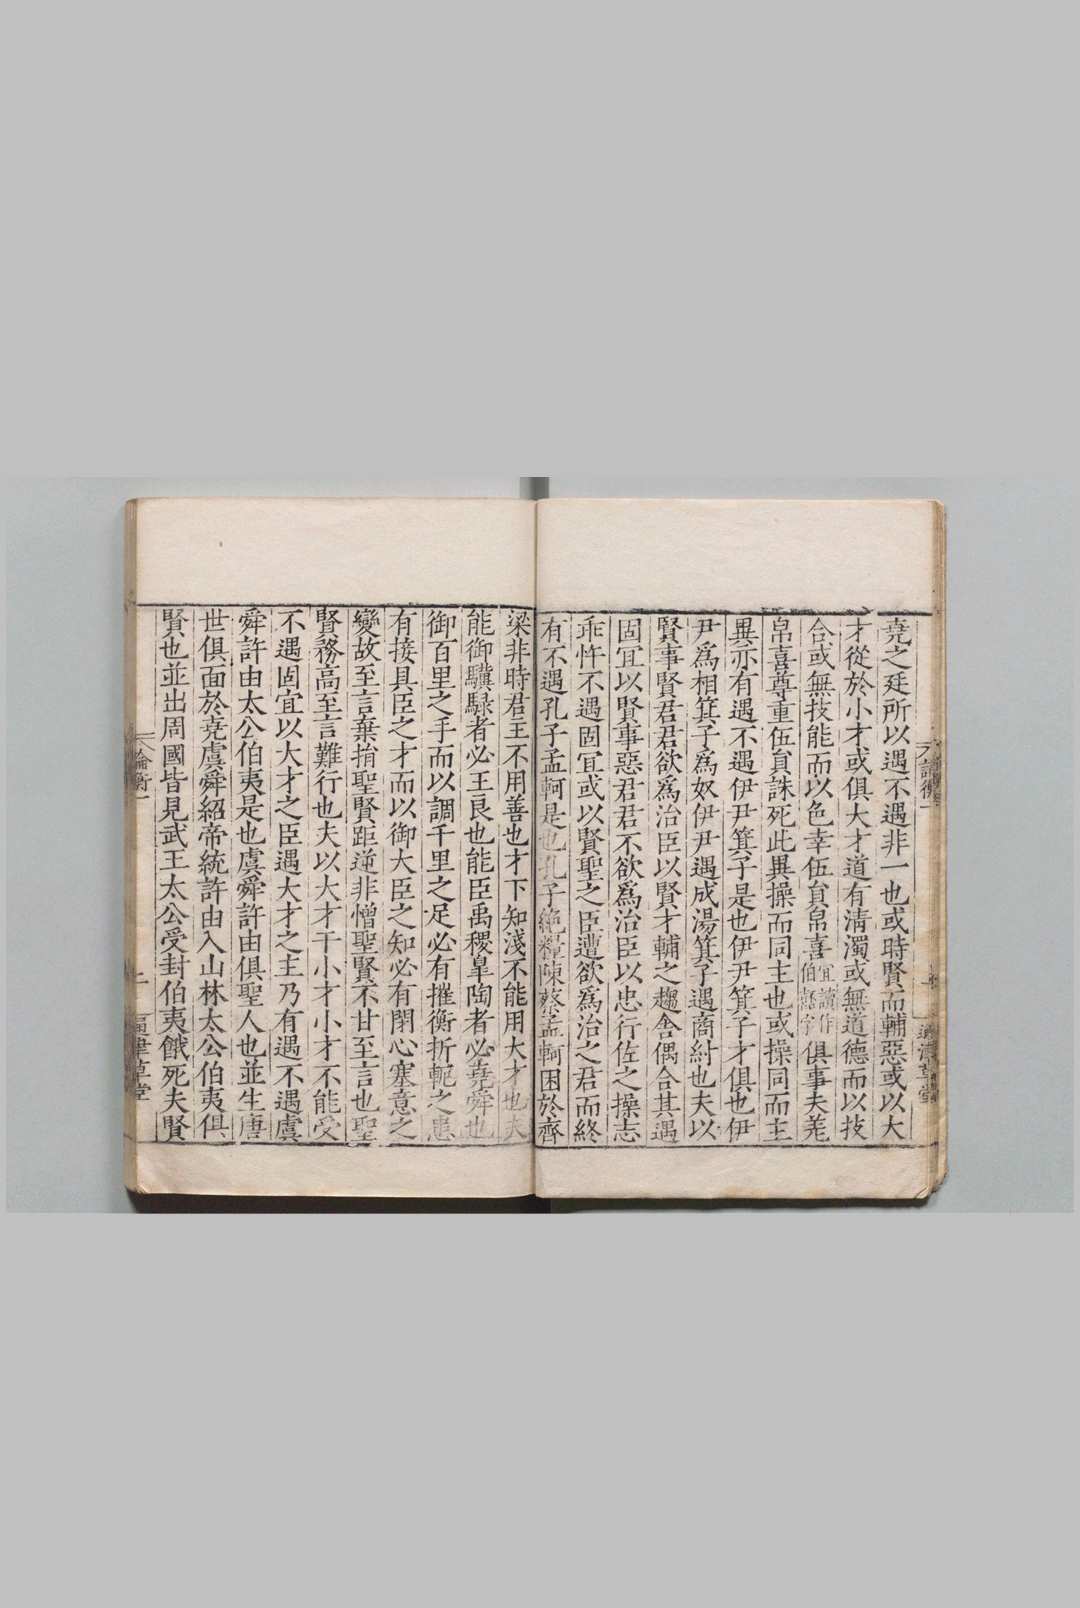 堯之廷所以遇不遇非一也或時賢而輔惡或以大
才從於小才或俱大才道有清濁或無道德而以技
合或無技能而以色幸伍員帛喜宜讀作伯嚭字俱事夫差
帛喜尊重伍員誅死此異操而同主也或操同而主
異亦有遇不遇伊尹箕子是也伊尹箕子才俱也伊
尹爲相箕子爲奴伊尹遇成湯箕子遇商紂也夫以
賢事賢君君欲爲治臣以賢才輔之趨舍偶合其遇
固宜以賢事惡君君不欲爲治臣以忠行佐之操志
乖忤不遇固宜或以賢聖之臣遭欲爲治之君而終
有不遇孔子孟軻是也孔子絶糧陳蔡孟軻困於齊
論衡一
二
通津草堂
梁非時君王不用善也才下知淺不能用大才也夫
能御驥騄者必王良也能臣禹稷臯陶者必堯舜也
御百里之手而以調千里之足必有摧衡折軛之患
有接具臣之才而以御大臣之知必有閉心塞意之
變故至言棄捐聖賢距逆非憎聖賢不甘至言也聖
賢務高至言難行也夫以大才干小才小才不能受
不遇固宜以大才之臣遇大才之主乃有遇不遇虞
舜許由太公伯夷是也虞舜許由俱聖人也並生唐
世俱面於堯虞舜紹帝統許由入山林太公伯夷俱
賢也並出周國皆見武王太公受封伯夷餓死夫賢
論衡一
通津草堂